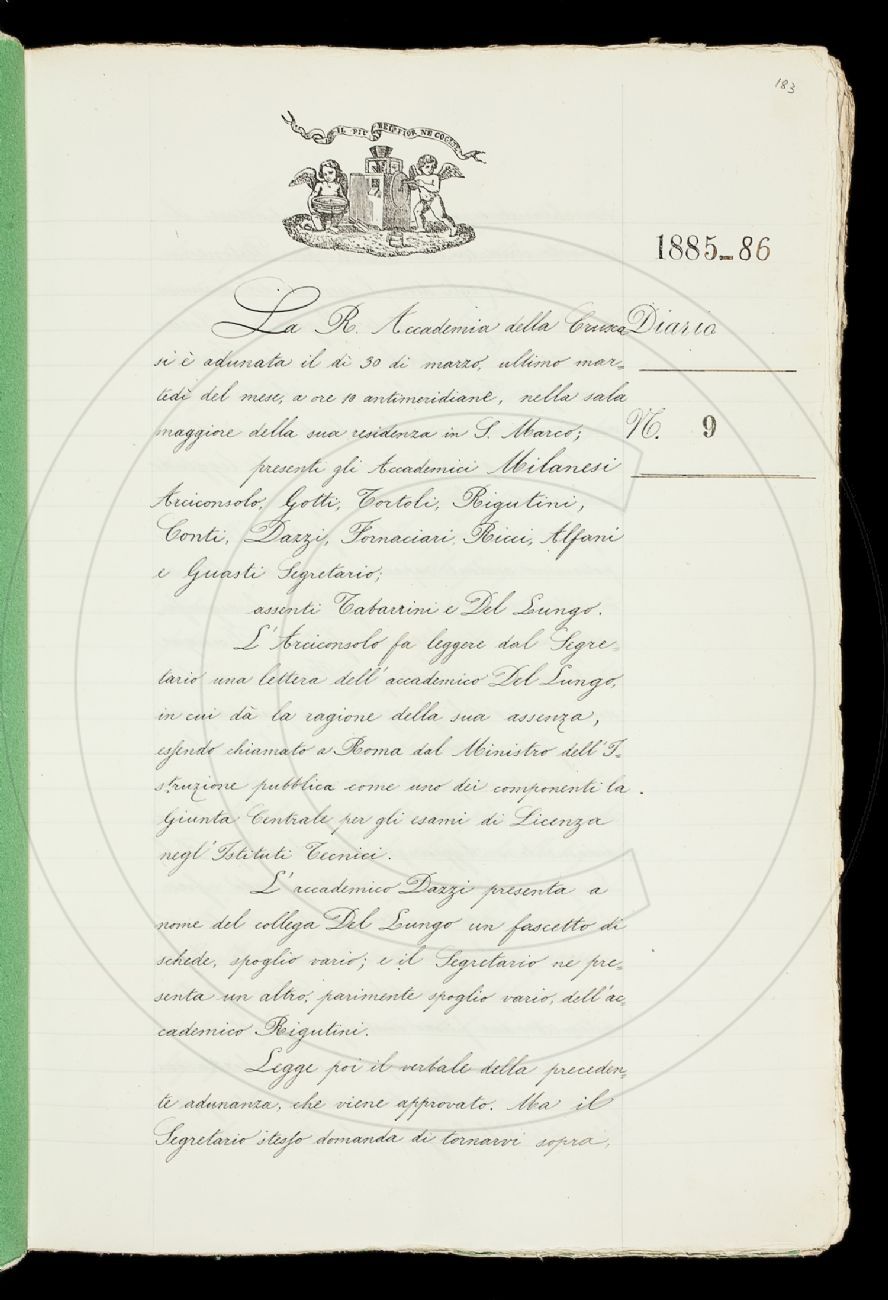 183
IL PIÙ BEL FIOR NE COGLIE
1885-86
Diario
N. 9
La R. Accademia della Crusca
si è adunata il dì 30 di marzo, ultimo mar=
tedì del mese, a ore 10 antimeridiane, nella sala
maggiore della sua residenza in S. Marco;
presenti gli Accademici Milanesi
Arciconsolo, Gotti, Tortoli, Rigutini,
Conti, Dazzi, Fornaciari, Ricci, Alfani
e Guasti Segretario;
assenti Tabarrini e Del Lungo.
L'Arciconsolo fa leggere dal Segre=
tario una lettera dell'accademico Del Lungo,
in cui dà la ragione della sua assenza,
essendo chiamato a Roma dal Ministro dell'I=
struzione pubblica come uno dei componenti la
Giunta Centrale per gli esami di Licenza
negl'Istituti Tecnici.
L'accademico Dazzi presenta a
nome del collega Del Lungo un fascetto di
schede, spoglio vario; e il Segretario ne pre=
senta un altro, parimente spoglio vario, dell'ac=
cademico Rigutini.
Legge poi il verbale della preceden=
te adunanza, che viene approvato. Ma il
Segretario stesso domanda di tornarvi sopra,